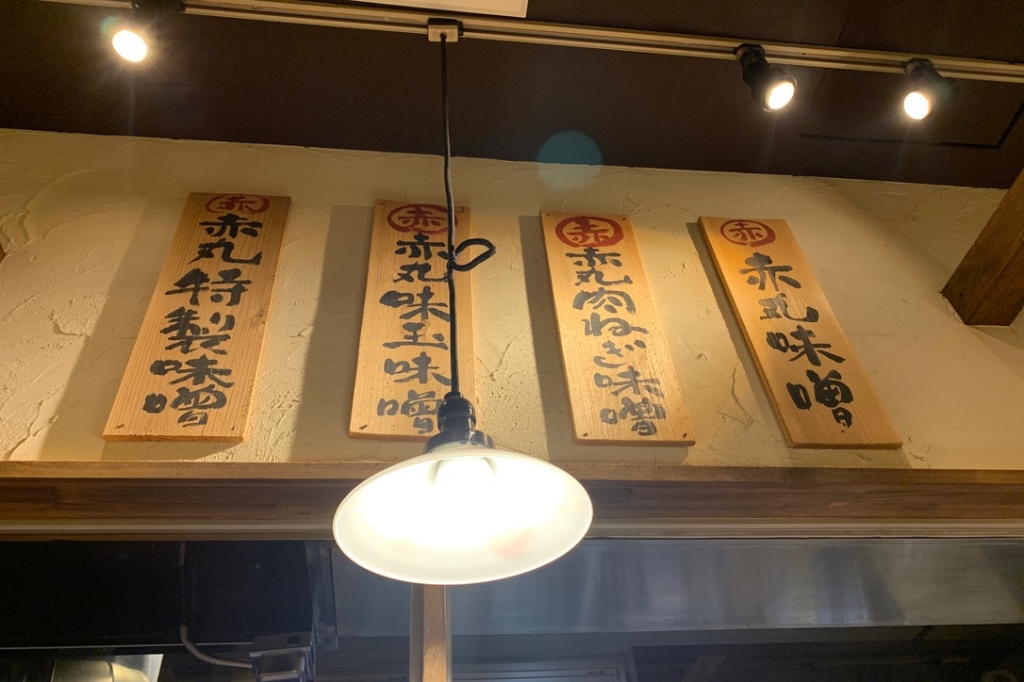 赤
赤丸特製味噌
赤
赤丸味玉味噌
赤
赤丸肉ねぎ味噌
赤
赤丸味噌